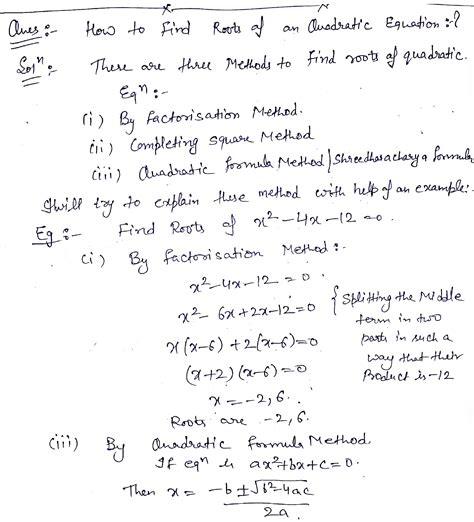 Ques :- How to Find Roots of an Quadratic Equation :-?
Solⁿ :- There are three Methods to Find roots of quadratic.
Eqⁿ :-
(i) By factorisation Method.
(ii) Completing square Method
(iii) Quadratic formula Method / Shreedhasacharya formula
I will try to explain these method with help of an example:-
Eg :- Find Roots of x²-4x-12=0.
(i) By factorisation Method :-
x²-4x-12=0.
x²-6x+2x-12=0 { Splitting the Middle
term in two
x(x-6)+2(x-6)=0 parts in such a
way that their
(x+2)(x-6)=0 Product is -12
x=-2,6.
Roots are -2,6.
(iii) By Quadratic formula Method.
If eqⁿ is ax²+bx+c=0.
Then x = -b±√b²-4ac
2a